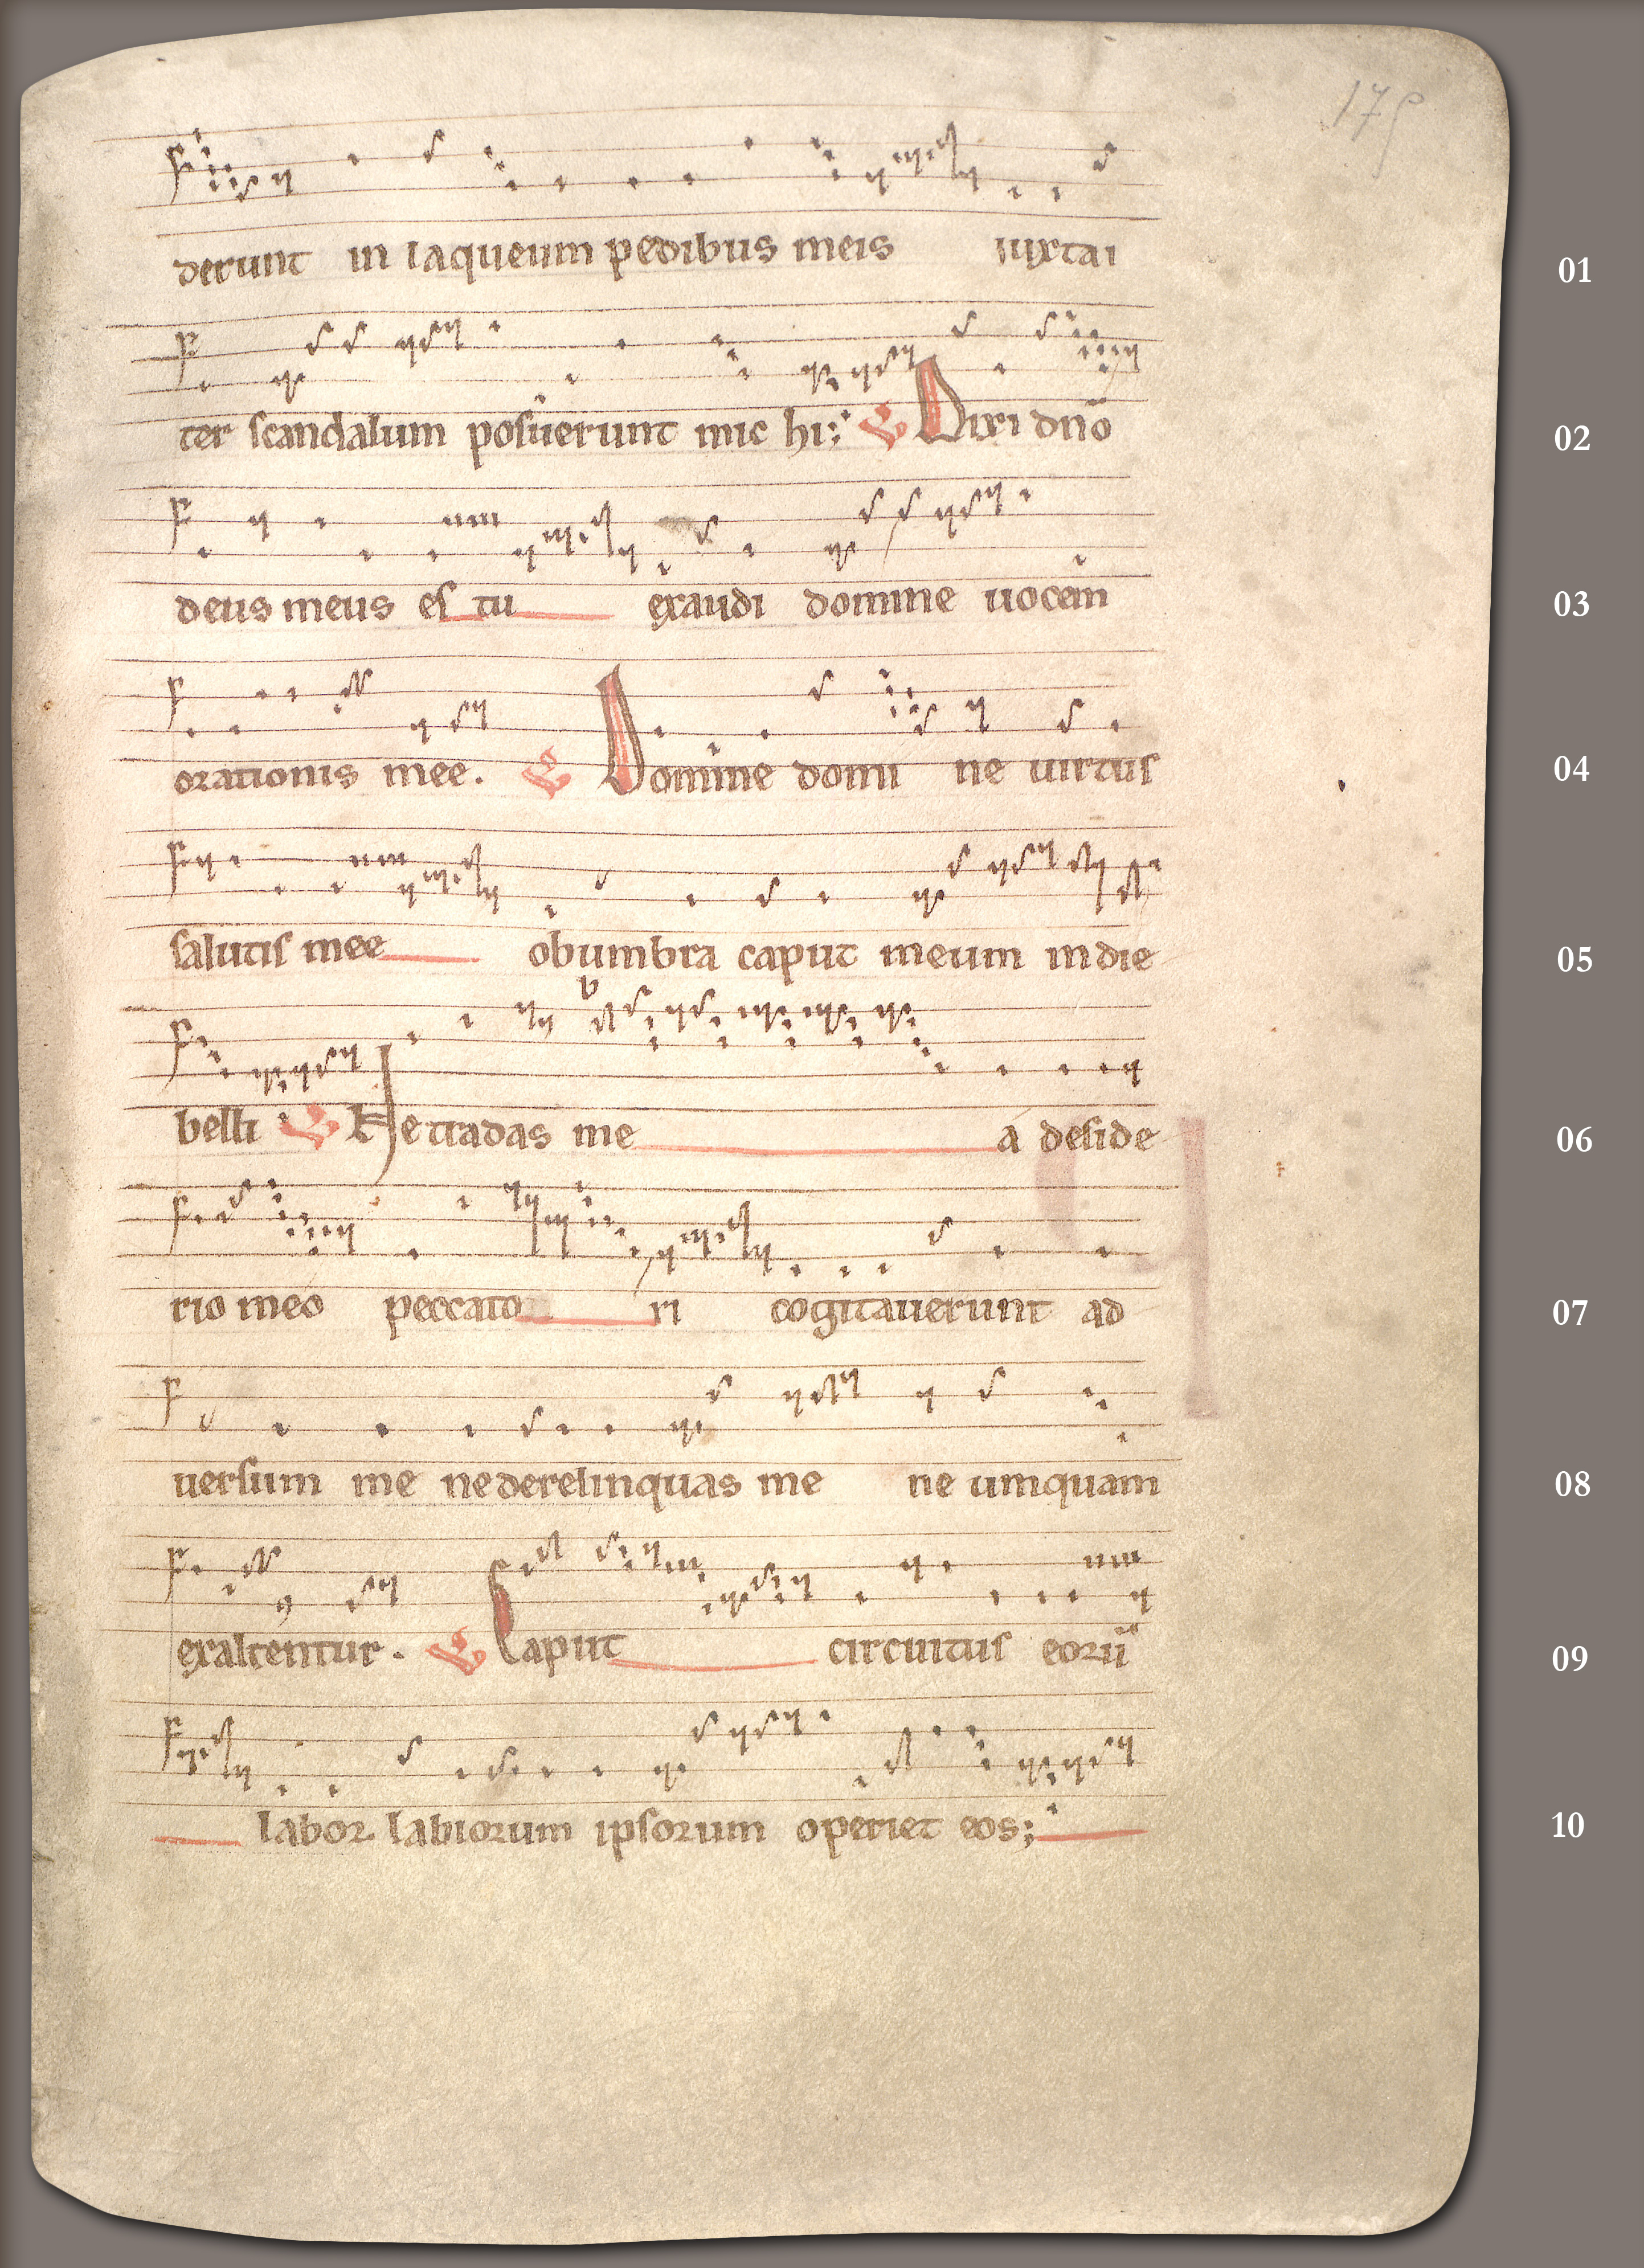 175
derunt in laqueum pedibus meis iuxta i
01
ter scandalum posuerunt mic hi; Dixi dño
02
deus meus es tu exaudi domine uocem
03
orationis mee. Domine domi ne uirtus
04
salutis mee obumbra caput meum in die
05
belli Ne tradas me a deside
06
rio meo peccato ri cogitauerunt ad
07
uersum me ne derelinquas me ne umquam
08
exaltentur. Caput circuitus eorū
09
labor labiorum ipsorum operiet eos;
10